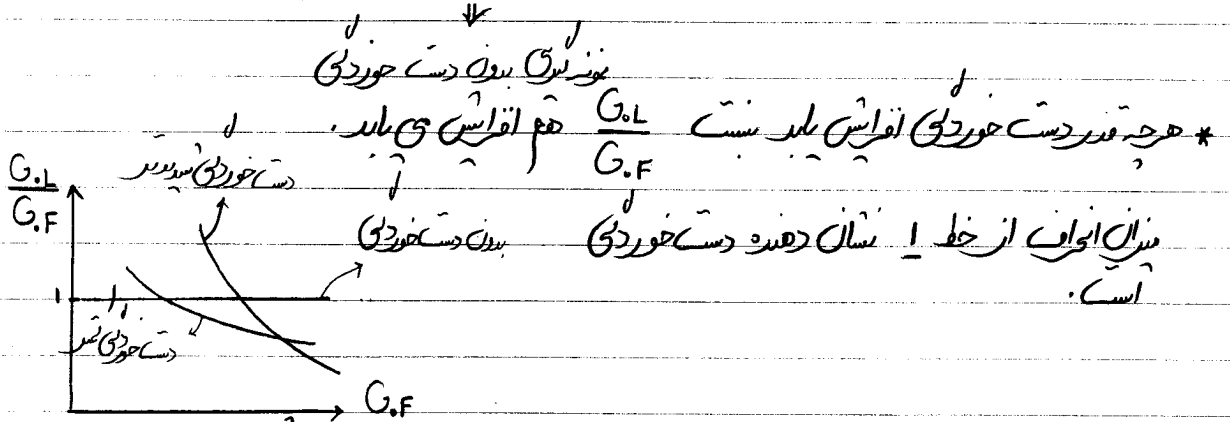 نمونه گیری بدون دست خوردگی
* هرچه قدر دست خوردگی افزایش یابد نسبت G.L/G.F هم افزایش می یابد.
میزان انحراف از خط 1 نشان دهنده دست خوردگی
است.
G.L/G.F
دست خوردگی شدیدتر
بدون دست خوردگی
1
دست خوردگی کمتر
G.F